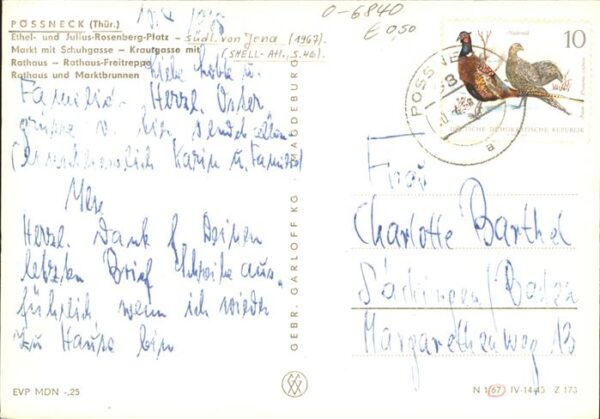 PÖSSNECK (Thür.)
Ethel- und Julius-Rosenberg-Platz -
südl. von Jena (1967).
Markt mit Schuhgasse - Krautgasse mit
(SHELL-Atl., S. 46).
Rathaus - Rathaus-Freitreppe
Rathaus und Marktbrunnen
Liebe u.
Familie. Herzl. Oster
grüsse v. hier sendet allen
Karin u. Familie)
Herzl. Dank f. Deinen
letzten Brief Schreibe aus-
führlich, wenn ich wieder
zu Hause bin
GEBR. GARLOFF KG · MAGDEBURG
EVP MDN -,25
O-6840
€ 0,50
10
DEUTSCHE DEMOKRATISCHE REPUBLIK
PÖSSNECK
a
Frau
Charlotte Barthel
Säckingen/Baden
Margarethenweg 13
N 1 (67) IV-14-45 Z 173